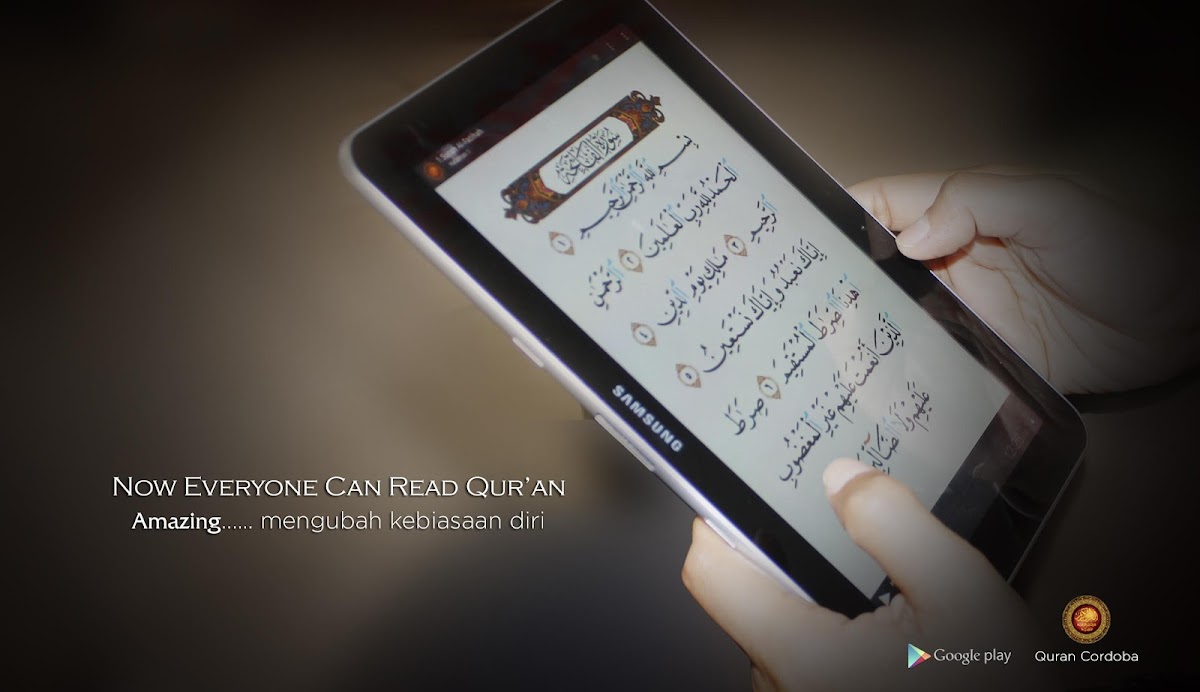 سُورَةُ الْفَاتِحَةِ
بِسْمِ ٱللَّهِ ٱلرَّحْمَٰنِ ٱلرَّحِيمِ ١
ٱلْحَمْدُ لِلَّهِ رَبِّ ٱلْعَٰلَمِينَ ٢ ٱلرَّحْمَٰنِ
ٱلرَّحِيمِ ٣ مَٰلِكِ يَوْمِ ٱلدِّينِ ٤
إِيَّاكَ نَعْبُدُ وَإِيَّاكَ نَسْتَعِينُ ٥
ٱهْدِنَا ٱلصِّرَٰطَ ٱلْمُسْتَقِيمَ ٦ صِرَٰطَ
ٱلَّذِينَ أَنْعَمْتَ عَلَيْهِمْ غَيْرِ ٱلْمَغْضُوبِ
عَلَيْهِمْ وَلَا ٱلضَّآلِّينَ
SAMSUNG
Now Everyone Can Read Qur'an
Amazing...... mengubah kebiasaan diri
Google play
Quran Cordoba